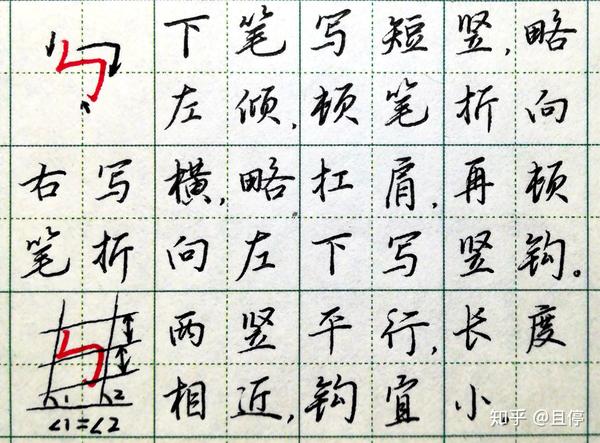 下笔写短竖,略
左倾,顿笔折向
右写横,略扛肩,再顿
笔折向左下写竖钩。
两竖平行,长度
相近,钩宜小。
∠1 ∠2
∠1=∠2
知乎 @且停